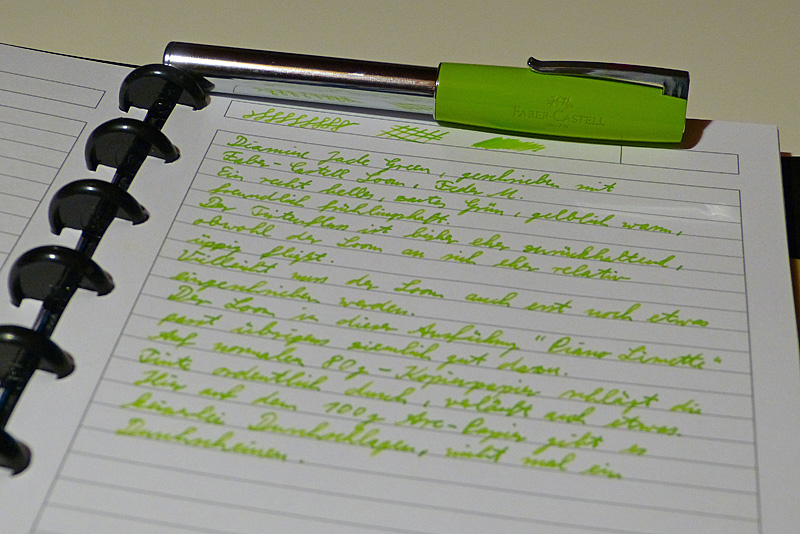 FABER-CASTELL
Diamine Jade Green, geschrieben mit
Faber-Castell Loom, Feder M.
Ein recht helles, zartes Grün, gelblich warm,
freundlich frühlingshaft.
Der Tintenfluss ist bisher eher zurückhaltend,
obwohl der Loom an sich eher relativ
üppig fließt.
Vielleicht muss der Loom auch erst noch etwas
eingeschrieben werden.
Der Loom in dieser Ausführung "Piano Limette"
passt übrigens ziemlich gut dazu.
Auf normalem 80g-Kopierpapier schlägt die
Tinte ordentlich durch, verläuft auch etwas.
Hier auf dem 100g Arc-Papier gibt es
keinerlei Durchschlagen, nicht mal ein
Durchscheinen.